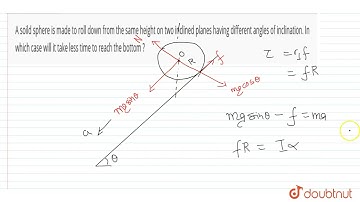 A solid sphere is made to roll down from the same height on two inclined planes having different angles of inclination. In
which case will it take less time to reach the bottom?
N
O
R
f
mg sinθ
mg cosθ
a
θ
τ = rf
= fR
mg sinθ - f = ma
fR = Iα
doubtnut